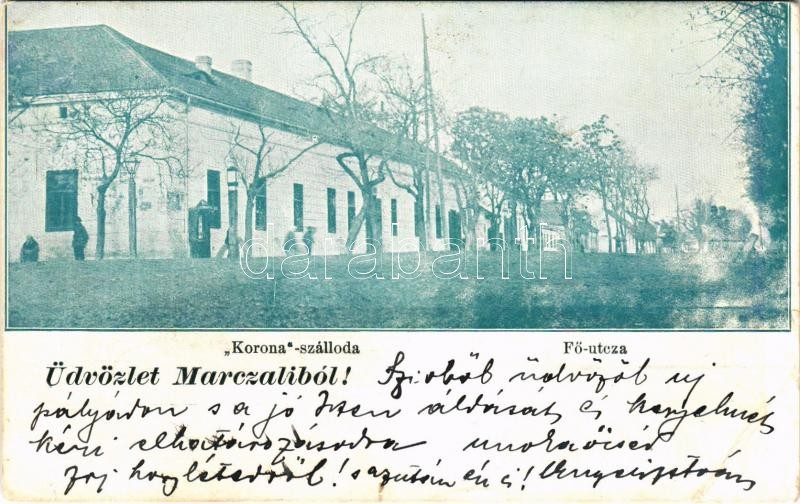 darabanth
„Korona“-szálloda Fő-utcza
Üdvözlet Marczaliból! Szivből üdvözöl uj
pályádon s a jó Isten áldását és kegyelmét
kéri elhatározásodra unokaöcséd
légy hozzá! s azután én is!